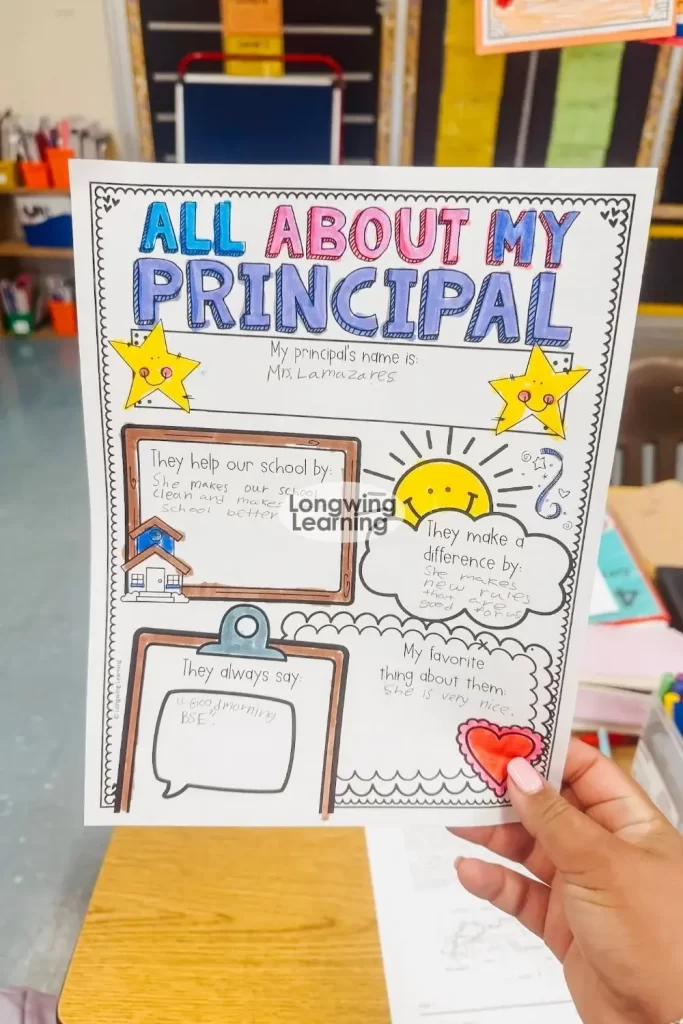 ALL ABOUT MY
PRINCIPAL
My principal's name is:
Mrs. Lamazares
They help our school by:
She makes our school
clean and makes
school better
Longwing
Learning
They make a
difference by:
She makes
new rules
that are
good for us
They always say:
"Good morning
BSE".
My favorite
thing about them:
She is very nice.